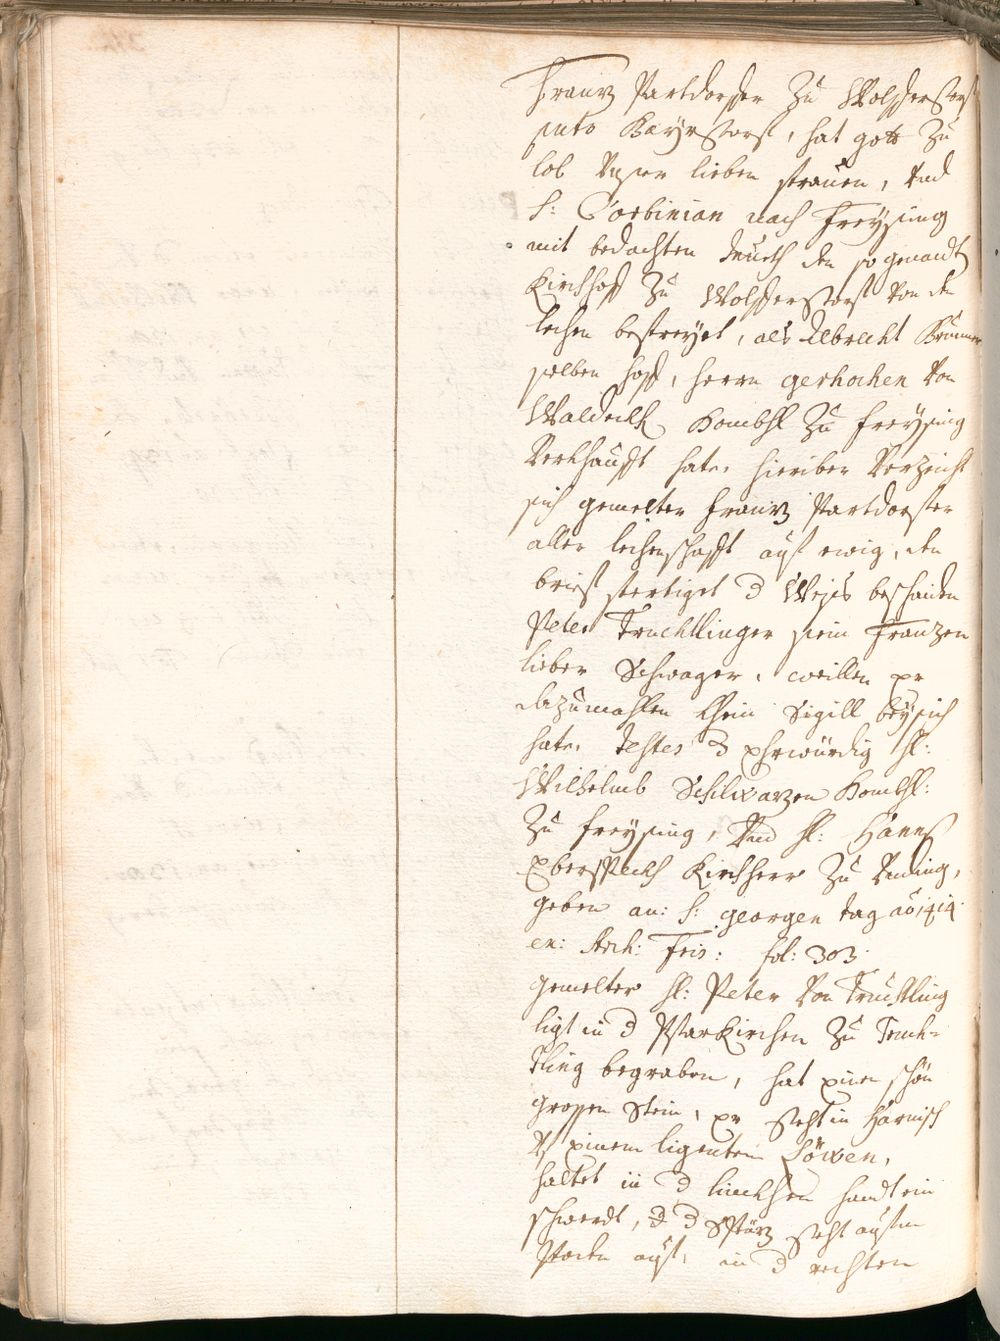 Franz Partdorffer Zu Wolfferstorf
unto Bayrstorf, hat gott Zu
lob Vnser lieben frauen, Vnd
S: Corbinian nach Freysing
mit bedachten Mueth den so genandt
Kirchhoff Zu Wolfferstorf Von den
lechen befreyet, als Albrecht
selben hoff, herrn gerhochen Von
Waldeckh Thombhl Zu Freysing
Verkhaufft hate. hieriber Verzeicht
sich gemelter Franz Partdorffer
aller lechenschafft auf ewig, den
brief fertiget d Weis beschaiden
Peter Truchtlinger sein Franzen
lieber Schwager, weillen er
dazumahlen khein Sigill bey sich
hate. Testes d Ehrwürdig H:
Wilhelmb Schilwazen Thombhl:
Zu Freysing, Vnd H: Hanns
Eberspeckh Kirchherr Zu
geben an: S: georgen tag ao 1414
ex: Arch: Fris: fol: 303.
gemelter H: Peter Von Truchtling
ligt in d Pfarkirchen Zu Truch=
tling begraben, hat einen schön
grossen Stein, er steht in Harnisch
Vf einem ligenten Löwen,
haltet in d linckhen handt ein
schwerdt, d d Spüz steht auf dem
Poden auf, in d rechten